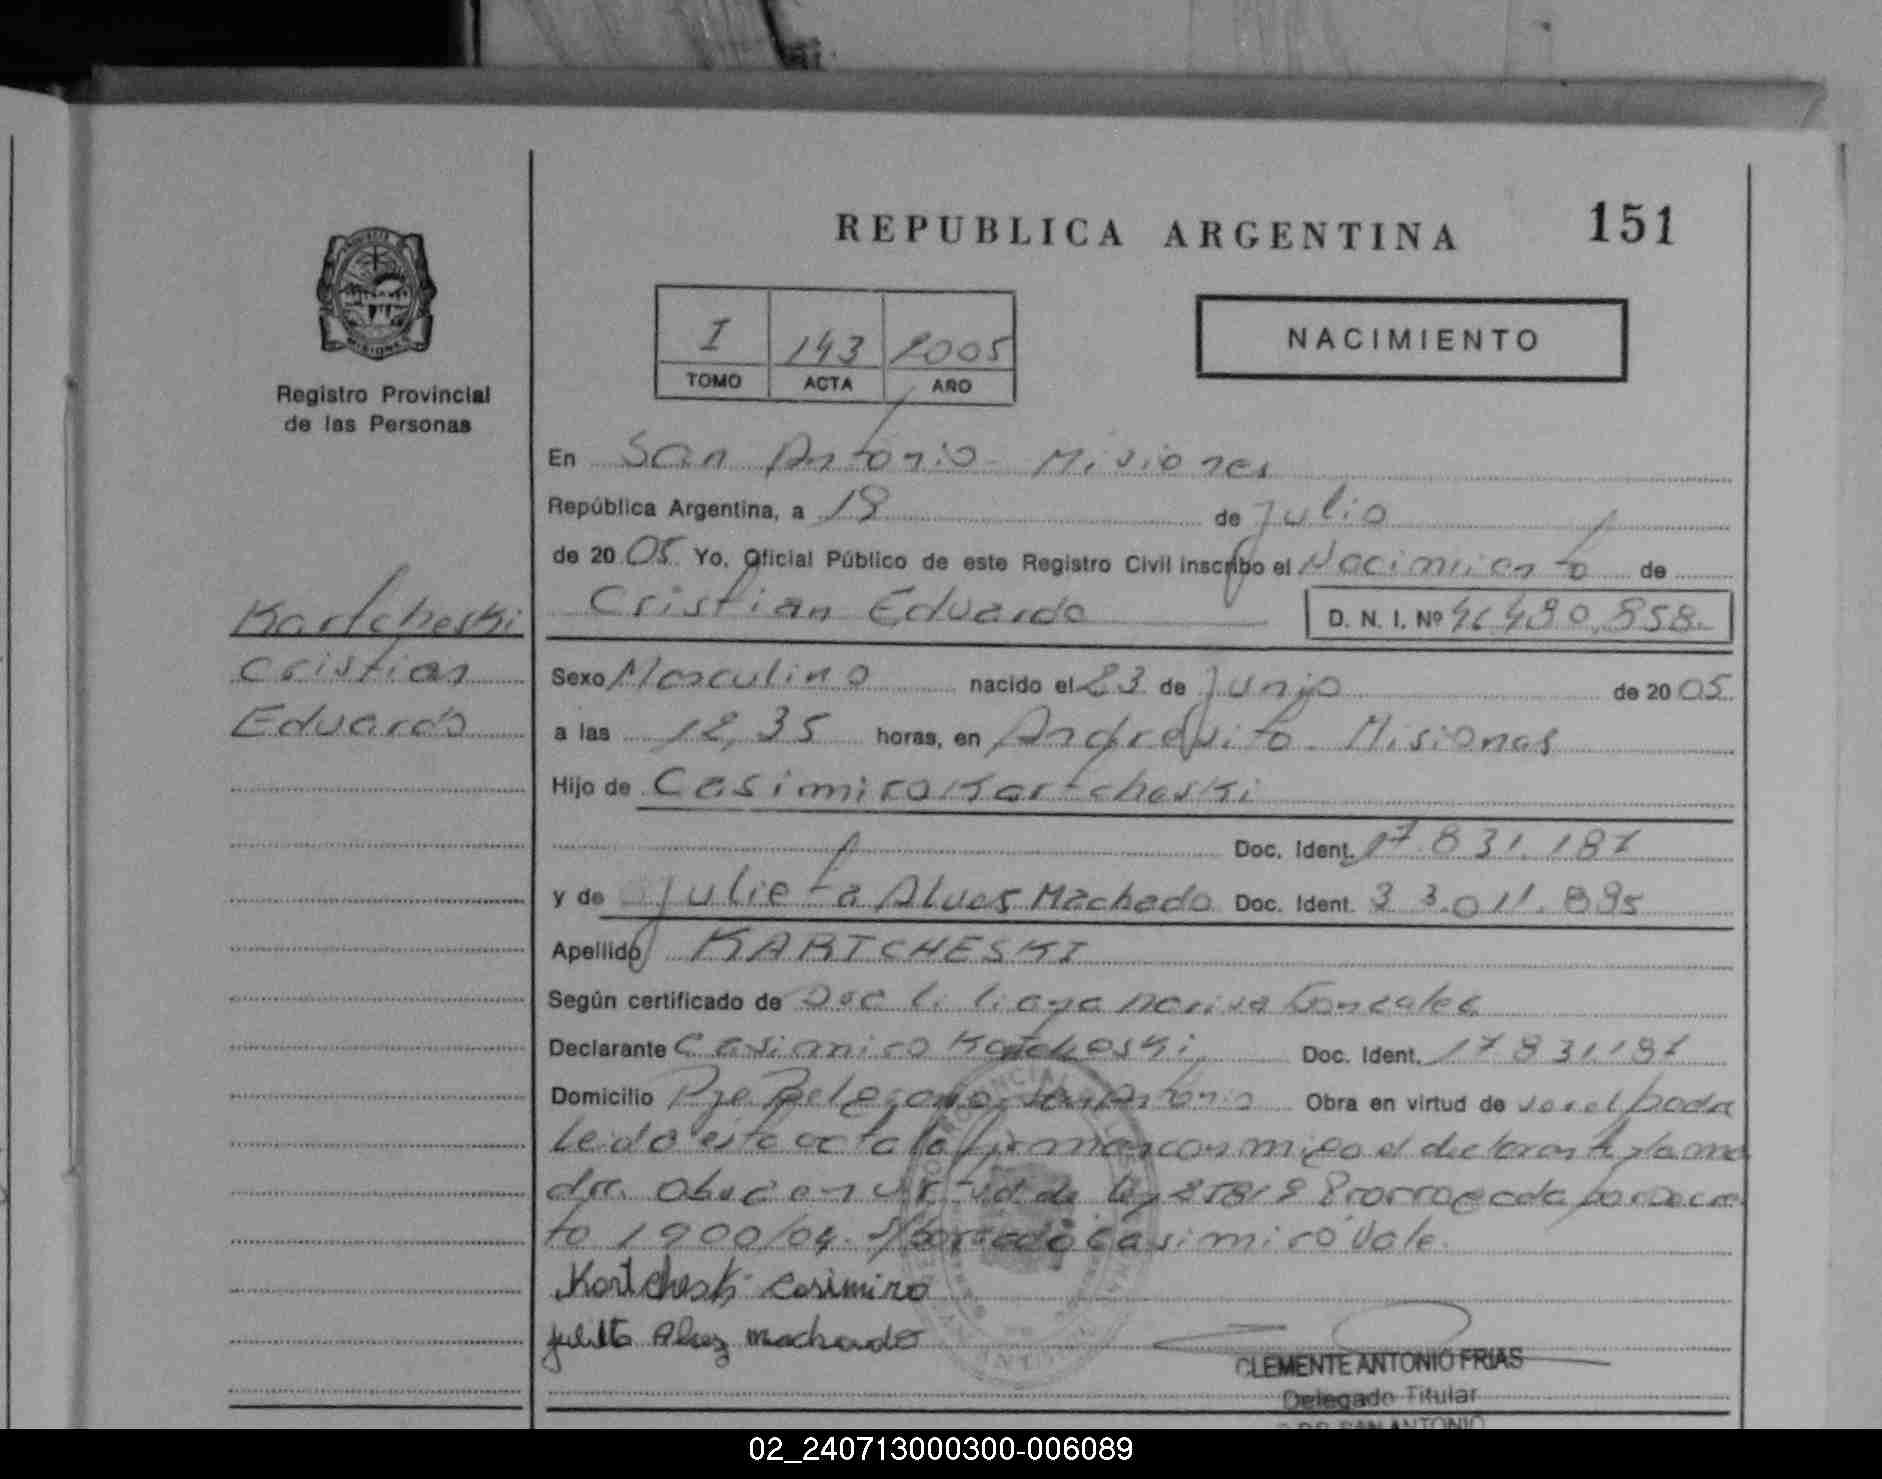 REPUBLICA ARGENTINA
151
MISIONES
Registro Provincial
de las Personas
I 143 2005
TOMO ACTA AÑO
NACIMIENTO
En San Antonio - Misiones
República Argentina, a 19 de Julio
de 2005 Yo, Oficial Público de este Registro Civil inscribo el Nacimiento de
Cristian Eduardo
D. N. I. Nº 46.490.858
Kartcheski
Cristian
Eduardo
Sexo Masculino nacido el 23 de Junio de 2005
a las 12,35 horas, en Andresito - Misiones
Hijo de Casimiro Kartcheski
Doc. Ident. 17.831.187
y de Julieta Alves Machado Doc. Ident. 33.011.895
Apellido KARTCHESKI
Según certificado de Doc Liliana Gonzalez
Declarante Casimiro Kartcheski Doc. Ident. 17831187
Domicilio Pje Belgrano San Antonio Obra en virtud de ser el padre
Leido esta acta la firman conmigo el declarante y la ma
dre. Obra en virtud de ley Prorrogada por Decre
to 1900/04. S/borrado Casimiro Vale.
Kartcheski Casimiro
Julieta Alves Machado
CLEMENTE ANTONIO FRIAS
Delegado Titular
SAN ANTONIO
02_240713000300-006089